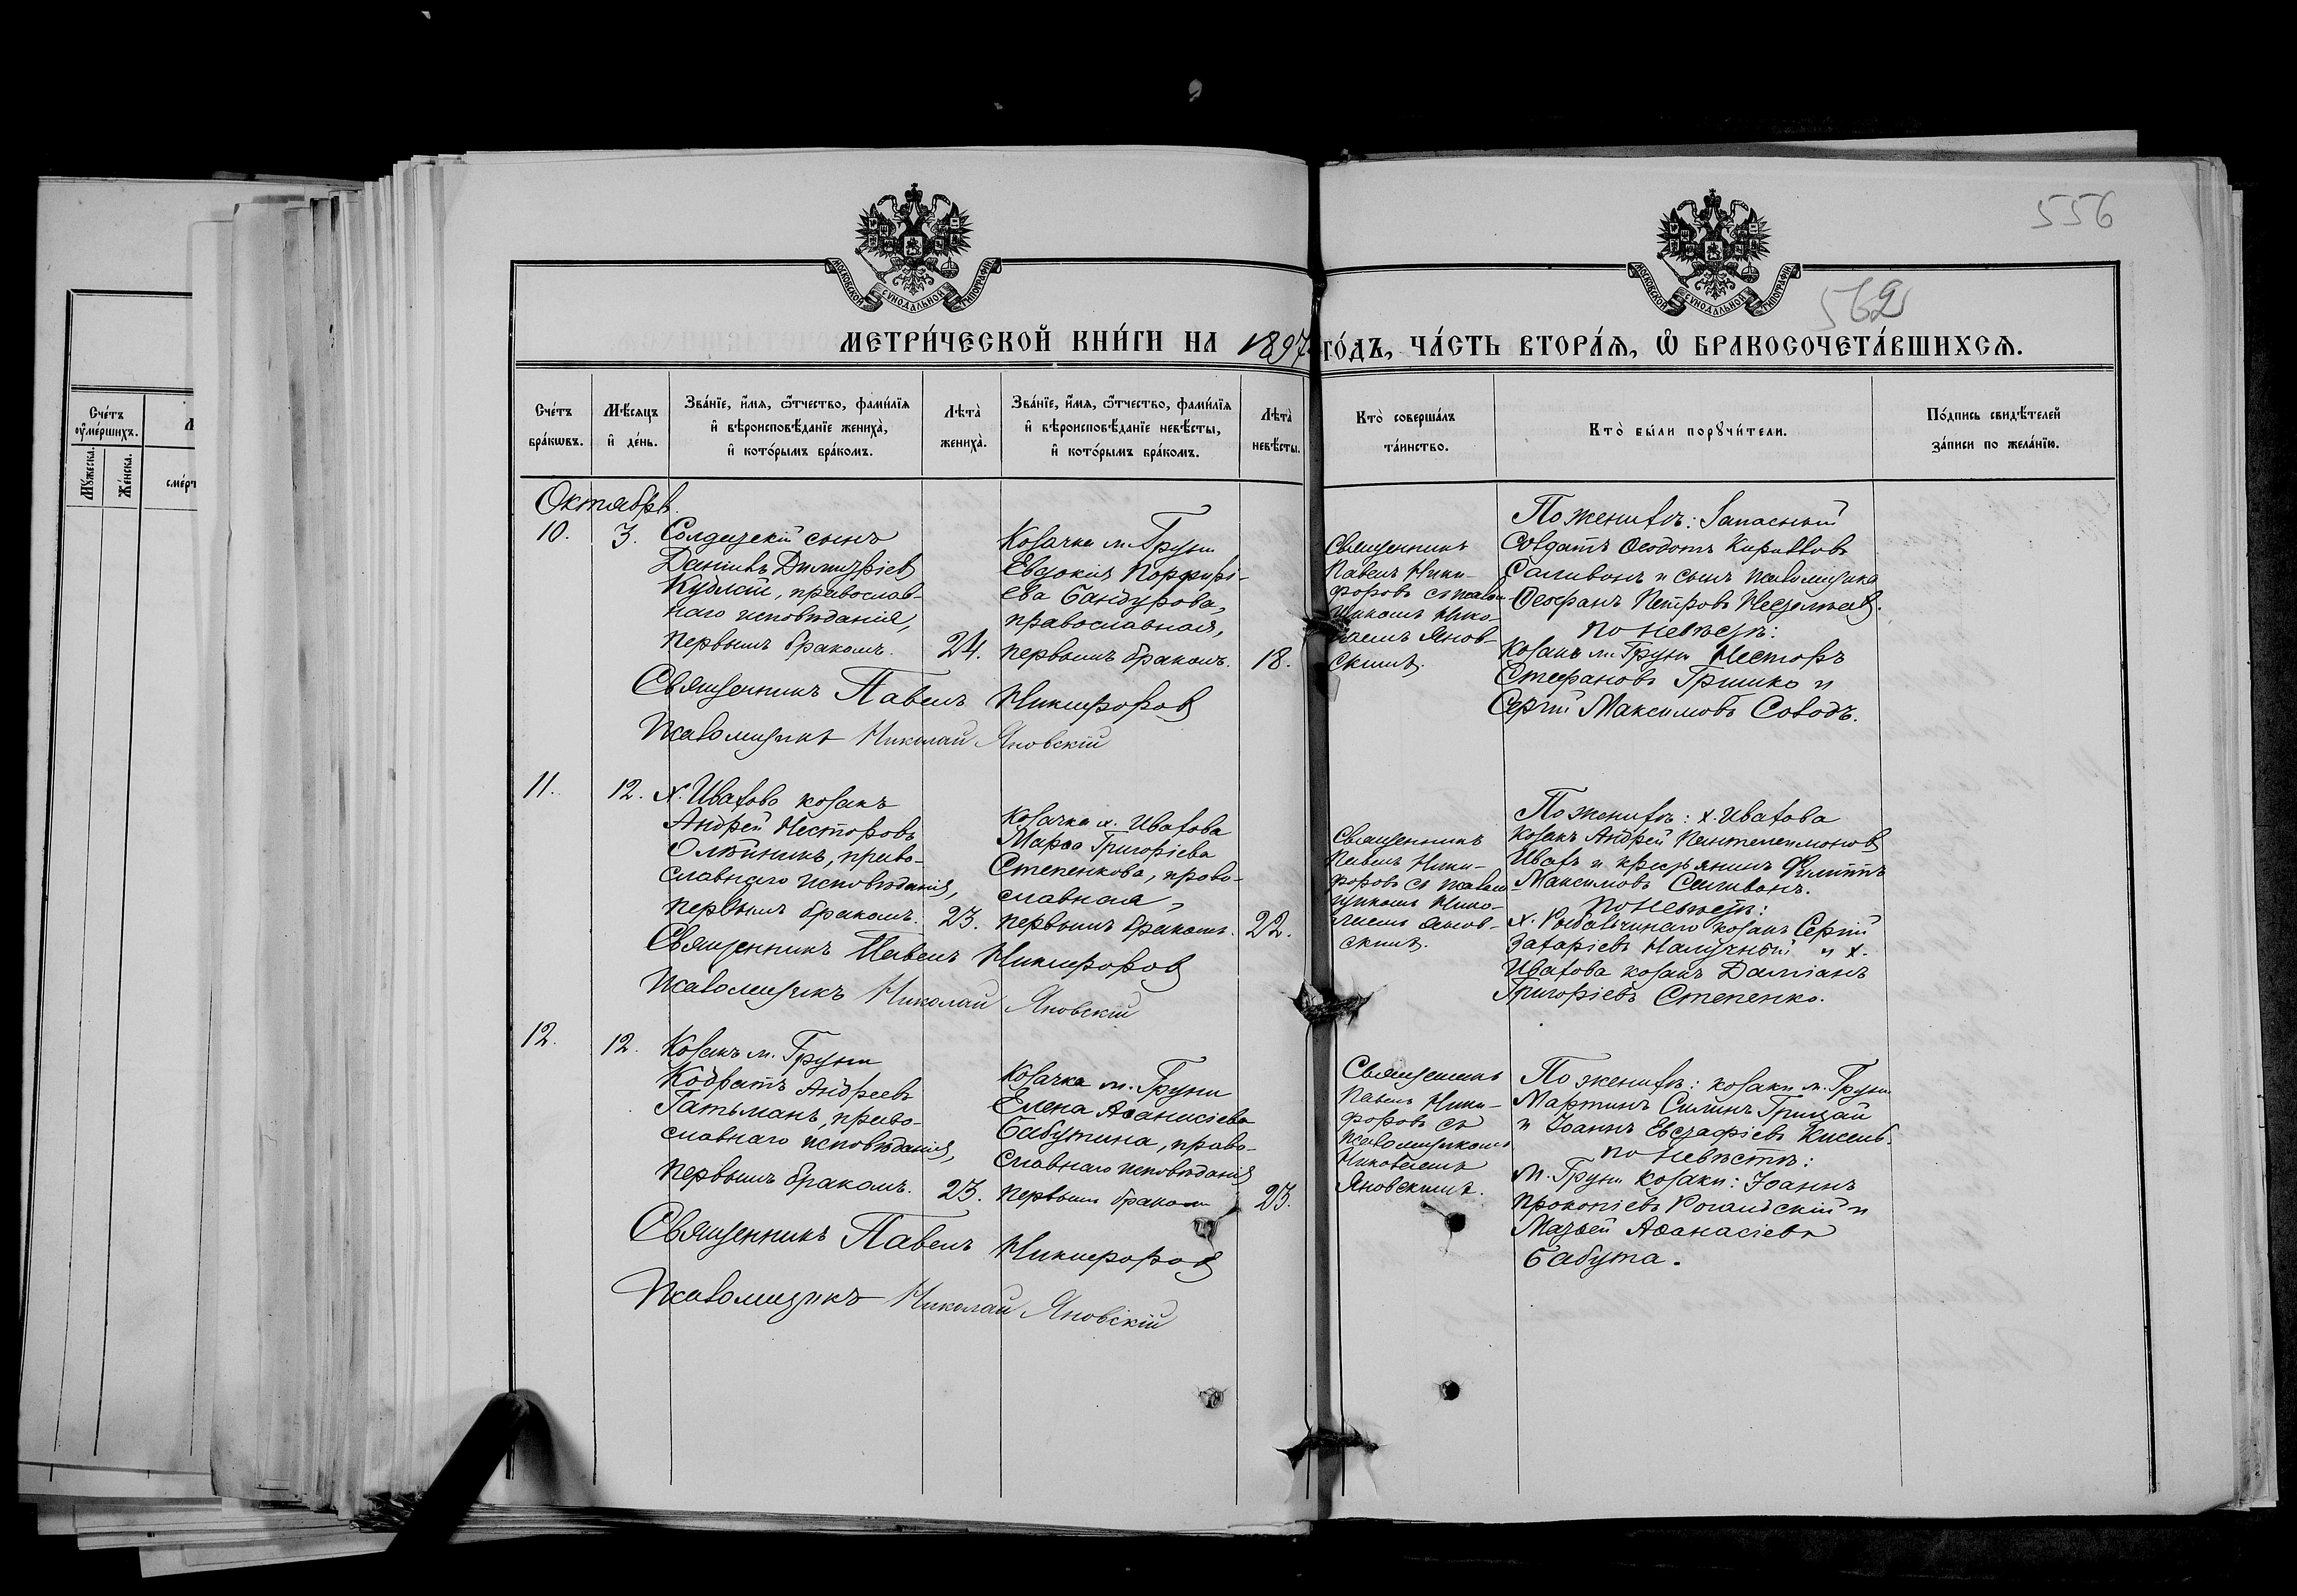 556
562
МОСКОВСКОЙ СѴНОДАЛЬНОЙ ТИПОГРАФІИ
МОСКОВСКОЙ СѴНОДАЛЬНОЙ ТИПОГРАФІИ
МЕТРИ́ЧЕСКОЙ КНИ́ГИ НА 1897 ГО́ДЪ, ЧА́СТЬ ВТОРА́Ѧ, Ѡ҆ БРАКОСОЧЕТА́ВШИХСѦ.
Сче́тъ
ᲂу҆ме́ршихъ.
Мꙋ́жеска.
Же́нска.
Сче́тъ
бра́кѡвъ.
Мѣ́сѧцъ
и҆ де́нь.
Зва́нїе, и҆́мѧ, ѻ҆́тчество, фами́лїѧ
и҆ вѣроисповѣ́данїе жениха̀,
и҆ кото́рымъ бра́комъ.
Лѣта̀
жениха̀.
Зва́нїе, и҆́мѧ, ѻ҆́тчество, фами́лїѧ
и҆ вѣроисповѣ́данїе невѣ́сты,
и҆ кото́рымъ бра́комъ.
Лѣта̀
невѣ́сты.
Кто̀ соверша́лъ
та́инство.
Кто̀ бы́ли порꙋчи́тели.
По́дпись свидѣ́телей
за́писи по жела́нїю.
Октябрь.
10.
3.
Солдатскій сынъ
Даніилъ Димитріевъ
Кублій, православ-
наго исповѣданія,
первымъ бракомъ.
24.
Козачка м. Груни
Евдокія Порфирі-
ева Бандурова,
православная,
первымъ бракомъ.
18.
Священникъ
Павелъ Ники-
форовъ съ псалом-
щикомъ Нико-
лаемъ Янов-
скимъ.
По женихѣ: Запасный
солдатъ Ѳеодотъ Кирилловъ
Саливонъ и сынъ псаломщика
Ѳеофанъ Петровъ
по невѣстѣ:
Козакъ м. Груни Несторъ
Стефановъ Гришко и
Сергій Максимовъ Соводъ.
Священникъ Павелъ Никифоровъ
Псаломщикъ Николай Яновскій
11.
12.
х. Ивахова козакъ
Андрей Несторовъ
Олѣйникъ, право-
славнаго исповѣданія,
первымъ бракомъ.
23.
Козачка х. Ивахова
Марѳа Григоріева
Степенкова, право-
славная,
первымъ бракомъ.
22.
Священникъ
Павелъ Ники-
форовъ съ псалом-
щикомъ Нико-
лаемъ Янов-
скимъ.
По женихѣ: х. Ивахова
козакъ Андрей Пантелеимоновъ
Ивахъ и крестьянинъ Филиппъ
Максимовъ Саливонъ.
по невѣстѣ:
х. козакъ Сергій
Захаріевъ и х.
Ивахова козакъ Даміанъ
Григоріевъ Степенко.
Священникъ Павелъ Никифоровъ
Псаломщикъ Николай Яновскій
12.
12.
Козакъ м. Груни
Кодратъ Андреевъ
Гатьманъ, право-
славнаго исповѣданія,
первымъ бракомъ.
23.
Козачка м. Груни
Елена Аѳанасіева
Бабутина, право-
славнаго исповѣданія
первымъ бракомъ
23.
Священникъ
Павелъ Ники-
форовъ съ
псаломщикомъ
Николаемъ
Яновскимъ.
По женихѣ: козаки м. Груни
Мартинъ Силинъ Грицай
и Іоаннъ Евстафіевъ Кисель.
по невѣстѣ:
м. Груни козаки: Іоаннъ
Прокопіевъ и
Матѳей Аѳанасіевъ
Бабута.
Священникъ Павелъ Никифоровъ
Псаломщикъ Николай Яновскій